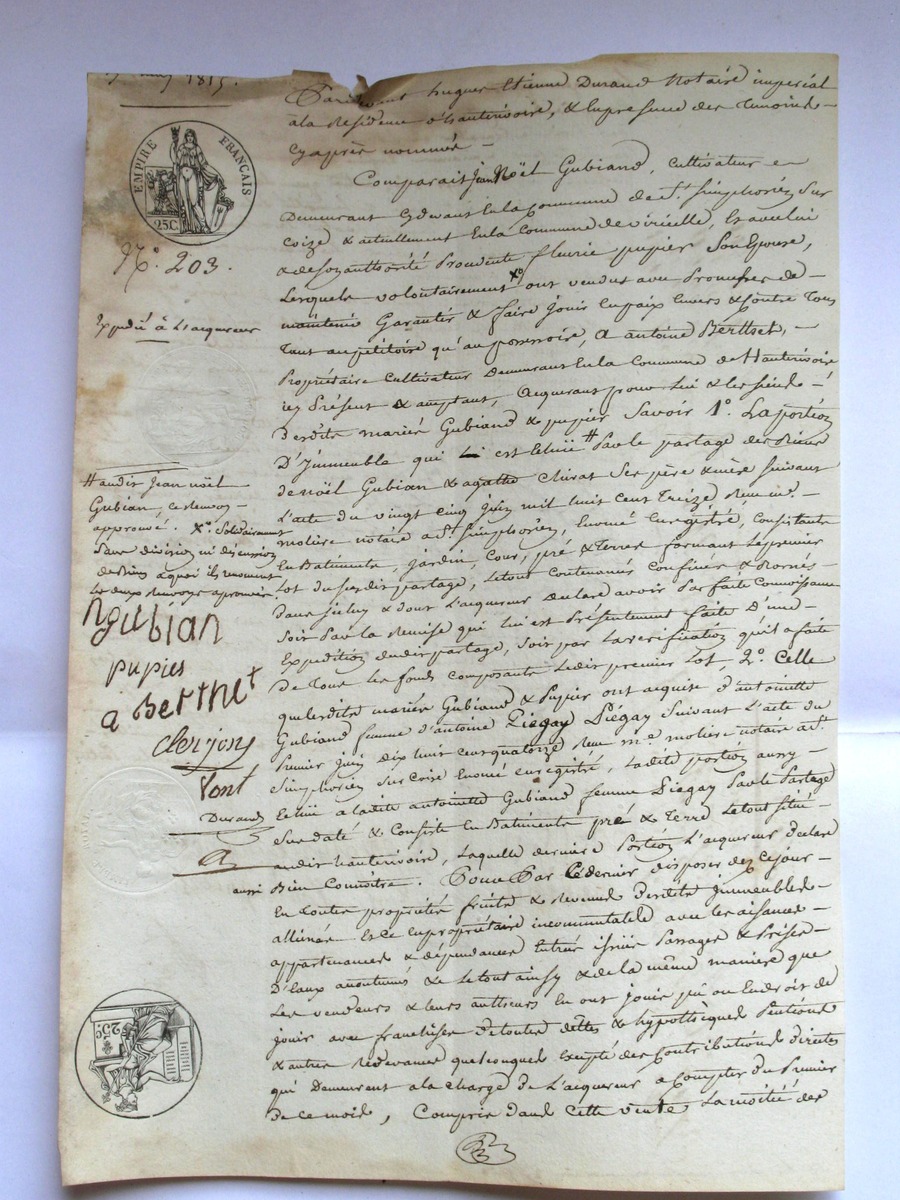 1815.
EMPIRE FRANÇAIS
25C.
N.° 203.
Expédié à L'acquereur
# audit Jean noël
Gubian, ce renvoy
approuvé. X° Solidairement
Sans division ni discussion
de biens a quoi ils renoncent
les deux Renvoys aprouvés.
Ngubian
pupier
a Berthet
Clerjon
Pont
Durand
aussi
25C.
Pardevant hugues Etienne Durand Notaire imperial
a la Residence d'hauterivoire, & En presence des Temoins
Cyaprès nommés
Comparait Jean Noël Gubiand, Cultivateur
Demeurant Cydevant En la Commune de St. Simphorien Sur
Coize & actuellement En la Commune de viricelle, Et avec lui
& de Son authorité Procedante fleurie pupier Son Epouse,
Lesquels volontairement X° ont vendus avec Promesses de
maintenir Garantir & faire jouir En paix Envers & Contre Tous
Tant au petitoire qu'au possessoire, A antoine Berthet,
Propriétaire Cultivateur Demeurant En la Commune de Hauterivoire
icy Présent & acceptant, acquerant pour Lui & les siens
Desdits mariés Gubiand & pupier Savoir 1°. La portion
D'Immeuble qui est Echue # Par le partage des Biens
de Noël Gubian & agathe Chirat Ses père & mère Suivant
L'acte du vingt cinq juin mil huit Cent Treize Reçu me.
molière notaire a St. Simphorien, Enregistré, Consistante
En Batiments, jardin, Cour, pré & Terres formant Le premier
Lot du Susdit partage, Le tout Contenancé Confiné & Bornés
Dans Icelui & dont L'acquereur Declare avoir Parfaite Connoissance
Soit Par la Remise qui lui est Présentement faite D'une
Expedition dudit partage, Soit par La verification qu'il a faite
De Tous les fonds Composants Ledit premier Lot, 2°. Celle
que Lesdits mariés Gubiand & Pupier ont acquise d'antoinette
Gubiand femme d'antoine Piégay Suivant L'acte du
Premier juin dix huit Cent quatorze Reçu me. molière notaire a St.
Simphorien Sur Coise Enregistré, Ladite portion aussy
Echue a Ladite antoinette Gubiand femme Piégay Par le Partage
Sus daté & Consiste En Batiments pré & Terre Le tout Situé
audit hauterivoire, Laquelle derniere Portion L'acquereur Declare
Bien Connoitre. Pour Par Ce dernier disposer dez Cejour
En toutes propriétés fruits & Revenus Desdits Immeubles
alliénés Et Ce En propriétaire incommutable avec les aisances
appartenances & dépendances Entrées issues Passages & Prises
D'Eaux & Le tout ainsy & de la même manière que
Les vendeurs & leurs autheurs En ont jouit pû ou En droit de
jouir avec franchises De toutes dettes & hypothèques Pentions
& autres Redevances quelconques Excepté des Contributions directes
qui Demeurent a la Charge de L'acquereur a Compter du Premier
De ce mois, Compris dans Cette vente La moitié des